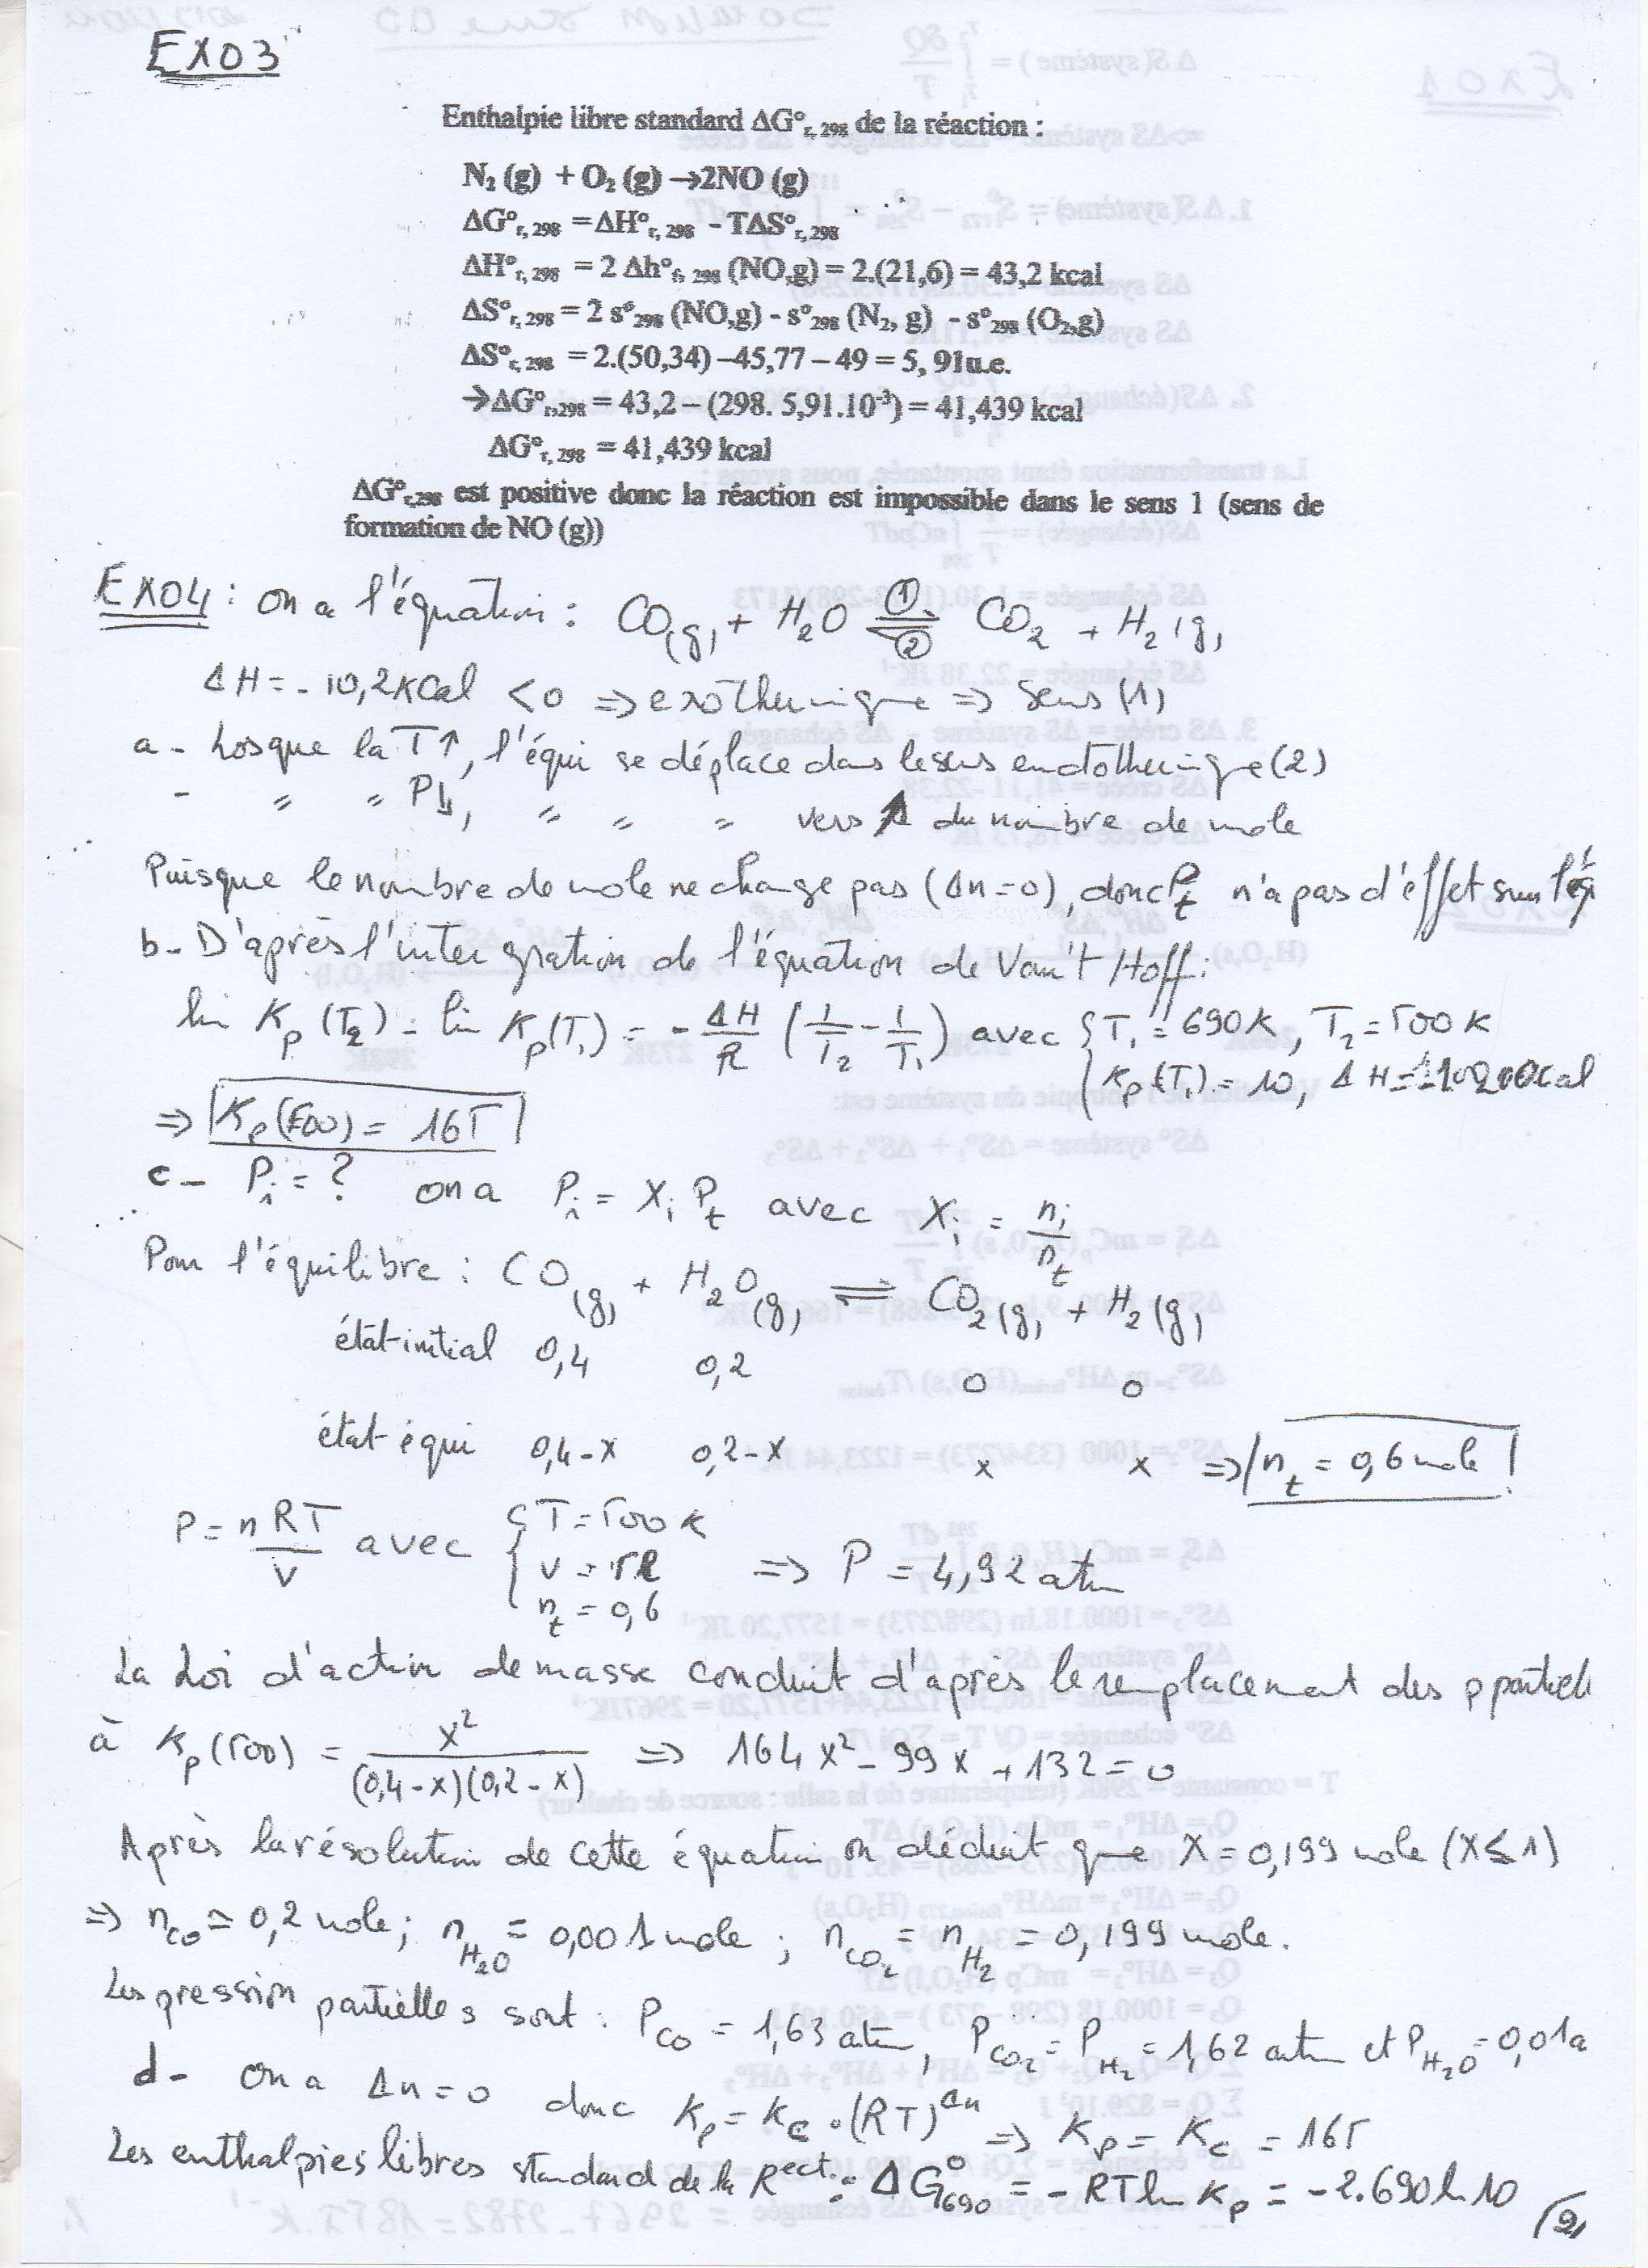 EXO3
Enthalpie libre standard ΔG°r, 298 de la réaction :
N₂ (g) + O₂ (g) →2NO (g)
ΔG°r, 298 = ΔH°r, 298 - TΔS°r, 298
ΔH°r, 298 = 2 Δh°f, 298 (NO,g) = 2.(21,6) = 43,2 kcal
ΔS°r, 298 = 2 s°298 (NO,g) - s°298 (N₂, g) - s°298 (O₂,g)
ΔS°r, 298 = 2.(50,34) –45,77 – 49 = 5, 91u.e.
→ΔG°r,298 = 43,2 – (298. 5,91.10⁻³) = 41,439 kcal
ΔG°r, 298 = 41,439 kcal
ΔG°r,298 est positive donc la réaction est impossible dans le sens 1 (sens de
formation de NO (g))
EXO4 : on a l'équation : CO(g) + H₂O ⇌ CO₂ + H₂(g)
① ②
ΔH = - 10,2 KCal < 0 => exothermique => Sens (1)
a - Losque la T↑, l'équi se déplace dans le sens endothermique (2)
- " " P↓, " " " vers ↑ du nombre de mole
Puisque le nombre de mole ne change pas (Δn=0), donc Pt n'a pas d'effet sur l'éq
b - D'après l'intergration de l'équation de Van't Hoff :
ln Kp (T₂) - ln Kp(T₁) = - ΔH/R (1/T₂ - 1/T₁) avec { T₁ = 690K, T₂ = 500K
Kp(T₁) = 10, ΔH = -10200cal
=> Kp(500) = 165
c - Pi = ? on a Pi = Xi Pt avec Xi = ni/nt
Pour l'équilibre : CO(g) + H₂O(g) ⇌ CO₂(g) + H₂(g)
état initial 0,4 0,2 0 0
état équi 0,4-x 0,2-x x x => nt = 0,6 mole
P = nRT/V avec { T = 500K
V = 5l => P = 4,92 atm
nt = 0,6
La Loi d'action de masse conduit d'après le remplacement des p partiell
à Kp(500) = x²/(0,4-x)(0,2-x) => 164x² - 99x + 132 = 0
Après la résolution de cette équation on déduit que X = 0,199 mole (X≤1)
=> nCO ≃ 0,2 mole ; nH₂O = 0,001 mole ; nCO₂ = nH₂ = 0,199 mole.
Les pression partielles sont : PCO = 1,63 atm, PCO₂ = PH₂ = 1,62 atm et PH₂O = 0,01a
d - On a Δn = 0 donc Kp = Kc . (RT)^Δn => Kp = Kc = 165
Les enthalpies libres standard de la Rect : ΔG°690 = - RT ln Kp = -2.690 ln 10